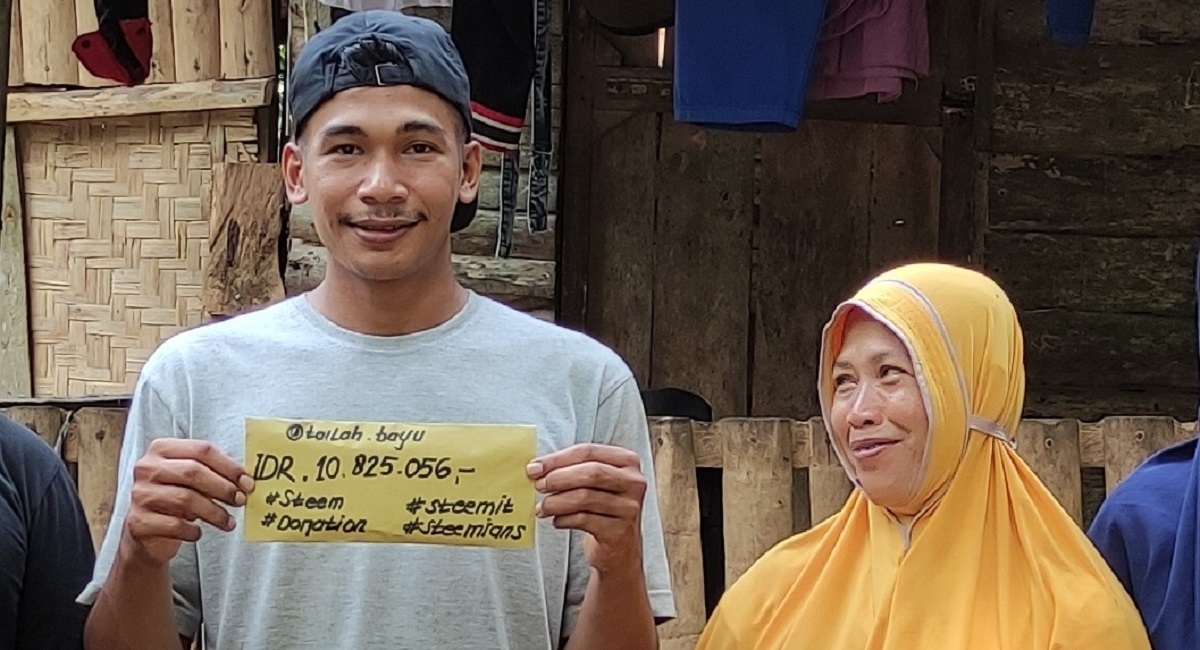 @toiLah.bayu
IDR. 10.825.056,-
#Steem #Steemit
#Donation #Steemians